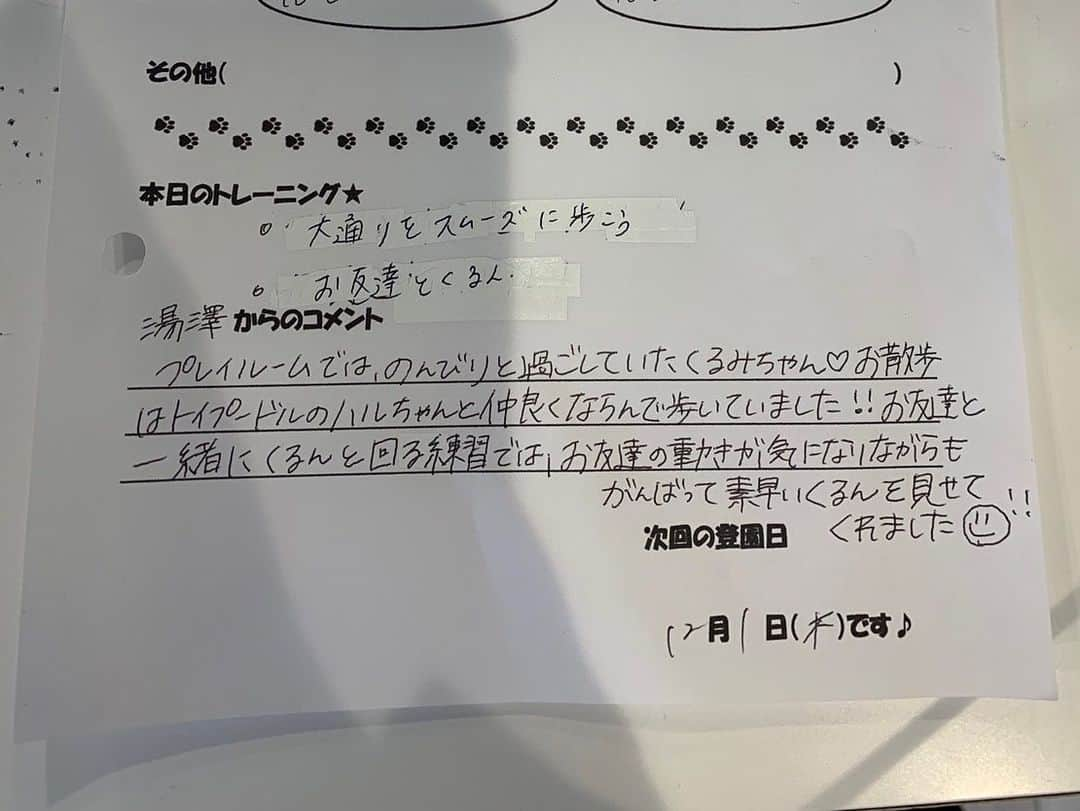 その他( )
本日のトレーニング★
。大通りをスムーズに歩こう
。お友達とくるん.
湯澤からのコメント
プレイルームでは、のんびりと過ごしていたくるみちゃん♡お散歩
はトイプードルのハルちゃんと仲良くならんで歩いていました!!お友達と
一緒にくるんと回る練習では、お友達の動きが気になりながらも
がんばって素早いくるんを見せて
くれました☺!!
次回の登園日
12月1日(木)です♪